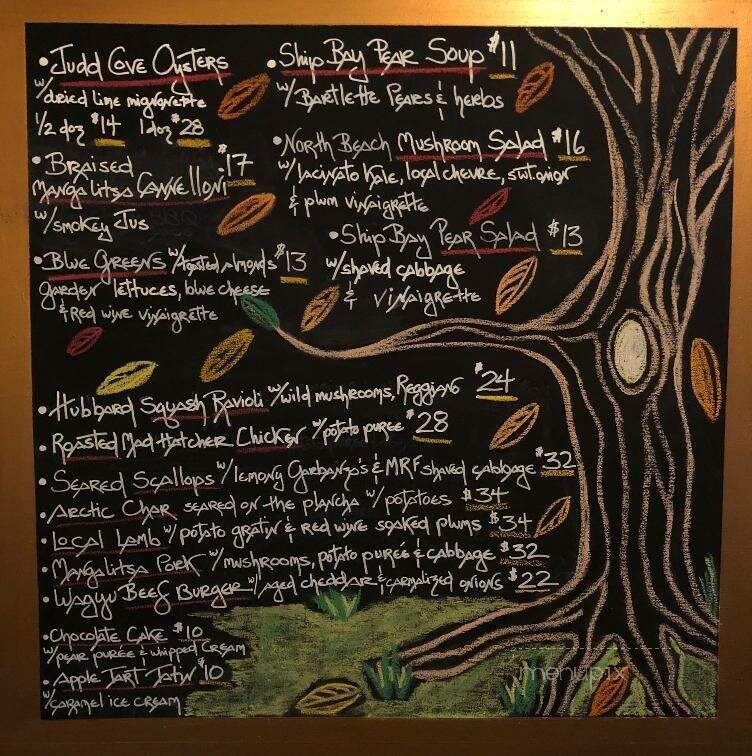 • Judd Cove Oysters
w/dried lime mignonette
1/2 doz $14 1 doz $28
• Braised $17
Mangalitsa Cannelloni
w/smokey Jus
• Blue Greens w/toasted almonds $13
garden lettuces, blue cheese
& red wine vinaigrette
• Ship Bay Pear Soup $11
w/ Bartlette Pears & herbs
• North Beach Mushroom Salad $16
w/lacinato kale, local chevre, swt. onion
& plum vinaigrette
• Ship Bay Pear Salad $13
w/shaved cabbage
& vinaigrette
• Hubbard Squash Ravioli w/wild mushrooms, Reggiano $24
• Roasted Mad Hatcher Chicken w/potato puree $28
• Seared Scallops w/lemony Garbanzo's & MRF shaved cabbage $32
• Arctic Char seared on the plancha w/potatoes $34
• Local Lamb w/potato gratin & red wine soaked plums $34
• Mangalitsa Pork w/mushrooms, potato purée & cabbage $32
• Wagyu Beef Burger w/aged cheddar & carmalized onions $22
• Chocolate Cake $10
w/pear purée & whipped cream
• Apple Tart Tatin $10
w/caramel ice cream
menupix